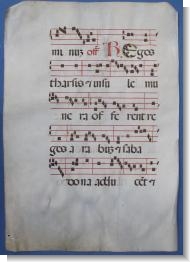 mi nuz off Reges
tharsis et insu le mu
ne ra offe rent re
ges a ra buz et saba
do na addu cēt et